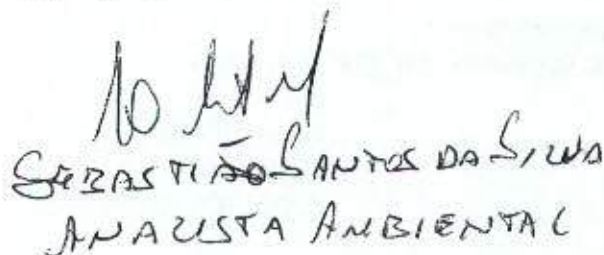 SEBASTIÃO SANTOS DA SILVA
ANALISTA AMBIENTAL